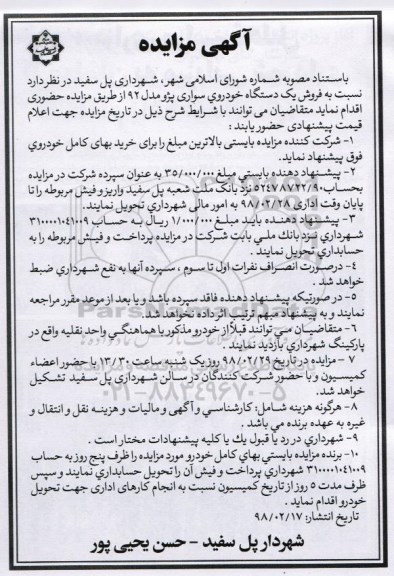 آگهی مزایده
باستناد مصوبه شماره شورای اسلامی شهر، شهرداری پل سفید در نظر دارد
نسبت به فروش یک دستگاه خودروي سواری پژو مدل ۹۲ از طریق مزایده حضوری
اقدام نماید متقاضیان می توانند با شرایط شرح ذیل در تاریخ مزایده جهت اعلام
قیمت پیشنهادی حضور یابند :
۱- شرکت کننده مزایده بایستی بالاترین مبلغ را برای خرید بهای کامل خودروي
فوق پیشنهاد نماید.
۲- پیشنهاد دهنده بایستی مبلغ ۳۵/۰۰۰/۰۰۰ به عنوان سپرده شرکت در مزایده
بحساب ۵۲۴۷۸۷۲۲/۹۰ نزد بانک ملت شعبه پل سفید واریز و فیش مربوطه را تا
پایان وقت اداری ۹۸/۰۲/۲۸ به امور مالی شهرداري تحویل نمایند.
۳- پیشنهاد دهنده باید مبلغ ۱/۰۰۰/۰۰۰ ریال به حساب ۳۱۰۰۰۰۱۰۴۱۰۰۹
شهرداري نزد بانك ملي بابت شرکت در مزایده پرداخت و فیش مربوطه را به
حسابداري تحویل نمایند .
۴- درصورت انصراف نفرات اول تا سوم ، سپرده آنها به نفع شهرداري ضبط
خواهد شد.
۵- در صورتیکه پیشنهاد دهنده فاقد سپرده باشد و یا بعد از موعد مقرر مراجعه
نمایند و به پیشنهاد مبهم ترتیب اثر داده نخواهد شد.
۶- متقاضیان مي توانند قبلاً از خودرو مذکور با هماهنگي واحد نقلیه واقع در
پارکینگ شهرداري بازدید نمایند .
۷- مزایده در تاریخ ۹۸/۰۲/۲۹ روز یک شنبه ساعت ۱۳/۳۰ با حضور اعضاء
کمیسیون و با حضور شرکت کنندگان در سالن شهرداری پل سفید تشکیل
خواهد شد.
۸- هرگونه هزینه شامل: کارشناسي و آگهي و مالیات و هزینه نقل و انتقال و
غیره به عهده برنده مي باشد .
۹- شهرداري در رد یا قبول یك یا کلیه پیشنهادات مختار است .
۱۰- برنده مزایده بایستي بهاي کامل خودرو مورد مزایده را ظرف پنج روز به حساب
۳۱۰۰۰۰۱۰۴۱۰۰۹ شهرداري پرداخت و فیش آن را تحویل حسابداري نمایند و سپس
ظرف مدت ۵ روز از تاریخ کمیسیون نسبت به انجام کارهای اداری جهت تحویل
خودرو اقدام نماید .
تاریخ انتشار: ۹۸/۰۲/۱۷
شهردار پل سفید - حسن یحیی پور
۰۲۱-۸۸۳۴۹۶۷۰-۵